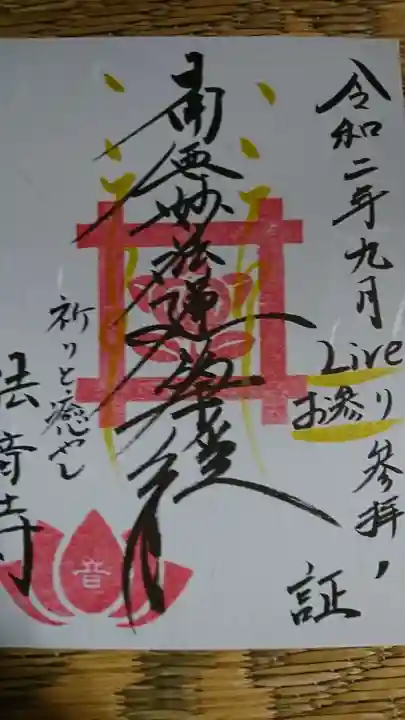 令和二年九月
Live
お参り参拝
証
南無妙法蓮華経
祈りと癒やし
法音寺
音